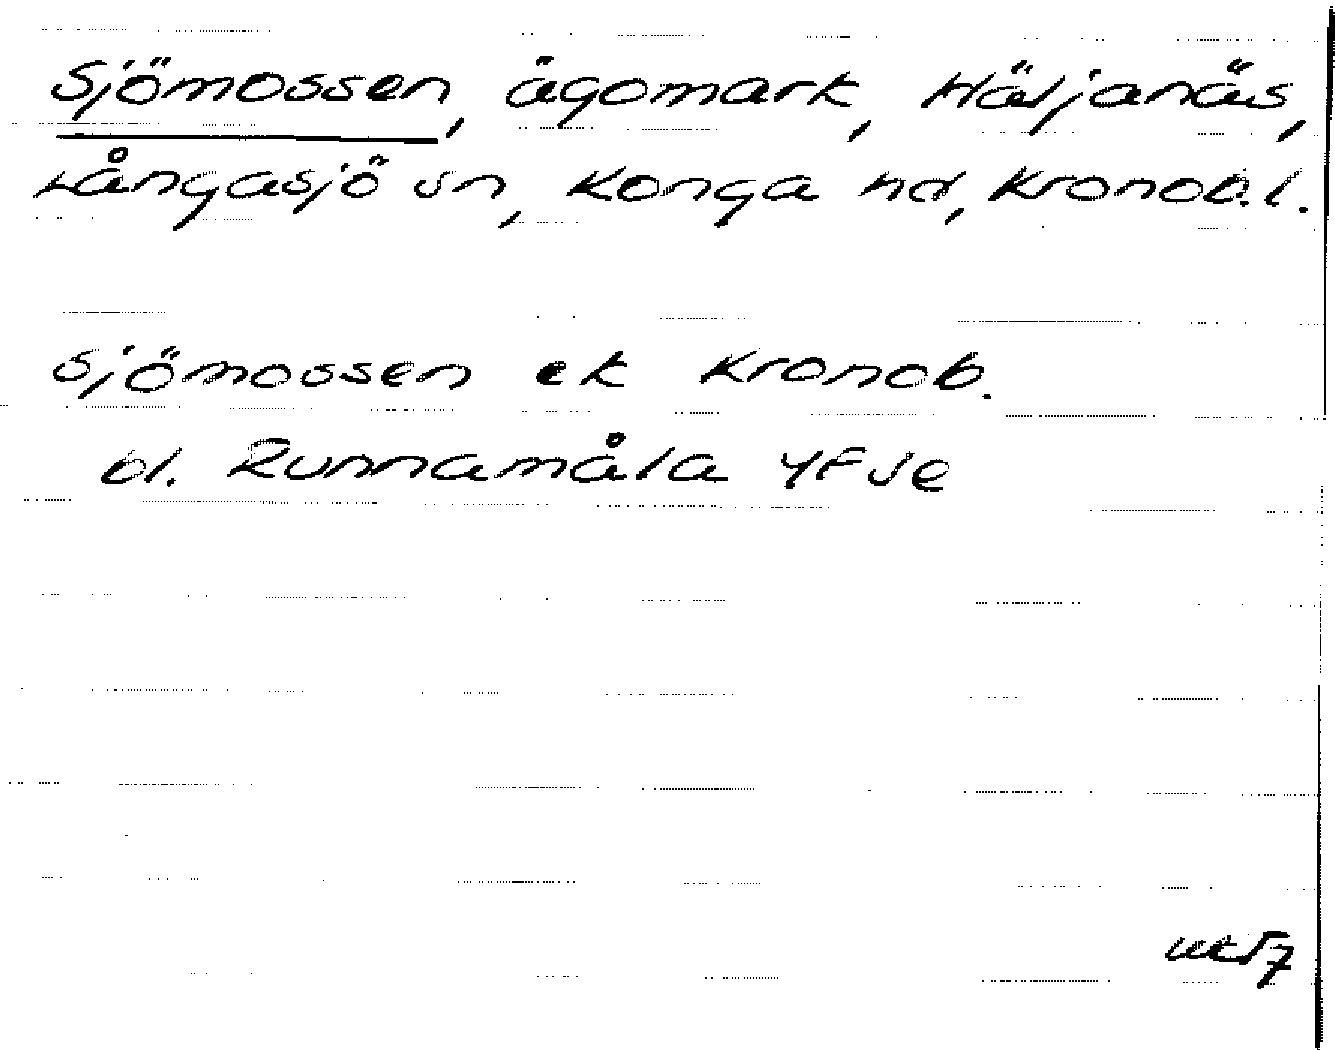 Sjömossen, ägomark, Häljanäs,
Långasjö sn, Konga hd, Kronob.l.
Sjömossen ek Kronob.
bl. Runnamåla 4F Se